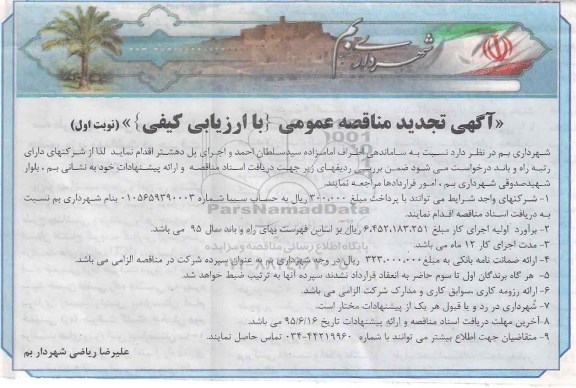 شهرداری بم
«آگهی تجدید مناقصه عمومی {با ارزیابی کیفی}» (نوبت اول)
شهرداری بم در نظر دارد نسبت به ساماندهی اطراف امامزاده سیدسلطان احمد و اجرای پل دهشتر اقدام نماید لذا از شرکتهای دارای
رتبه راه و باند درخواست می شود ضمن بررسی ردیفهای زیر جهت دریافت اسناد مناقصه و ارائه پیشنهادات خود به نشانی بم ، بلوار
شهیدصدوقی شهرداری بم ، امور قراردادها مراجعه نمایند.
۱- شرکتهای واجد شرایط می توانند با پرداخت مبلغ ۳۰۰،۰۰۰ ریال به حساب سیبا شماره ۰۱۰۵۶۵۹۳۹۰۰۰۳ بنام شهرداری بم نسبت
به دریافت اسناد مناقصه اقدام نمایند.
۲- برآورد اولیه اجرای کار مبلغ ۶،۴۵۲،۱۸۳،۲۵۱ ریال بر اساس فهرست بهای راه و باند سال ۹۵ می باشد.
۳- مدت اجرای کار ۱۲ ماه می باشد.
۴- ارائه ضمانت نامه بانکی به مبلغ ۳۲۳،۰۰۰،۰۰۰ ریال در وجه شهرداری بم به عنوان سپرده شرکت در مناقصه الزامی می باشد.
۵- هر گاه برندگان اول تا سوم حاضر به انعقاد قرارداد نشدند سپرده آنها به ترتیب ضبط خواهد شد.
۶- ارائه رزومه کاری ,سوابق کاری و مدارک شرکت الزامی می باشد.
۷- شهرداری در رد و یا قبول هر یک از پیشنهادات مختار است.
۸-آخرین مهلت دریافت اسناد مناقصه و ارائه پیشنهادات تاریخ ۹۵/۶/۱۶ می باشد.
۹- متقاضیان جهت اطلاع بیشتر می توانند با شماره ۴۴۲۱۹۹۶۰-۰۳۴ تماس حاصل نمایند.
علیرضا ریاضی شهردار بم
ParsNamadData
پایگاه اطلاع رسانی مناقصه و مزایده